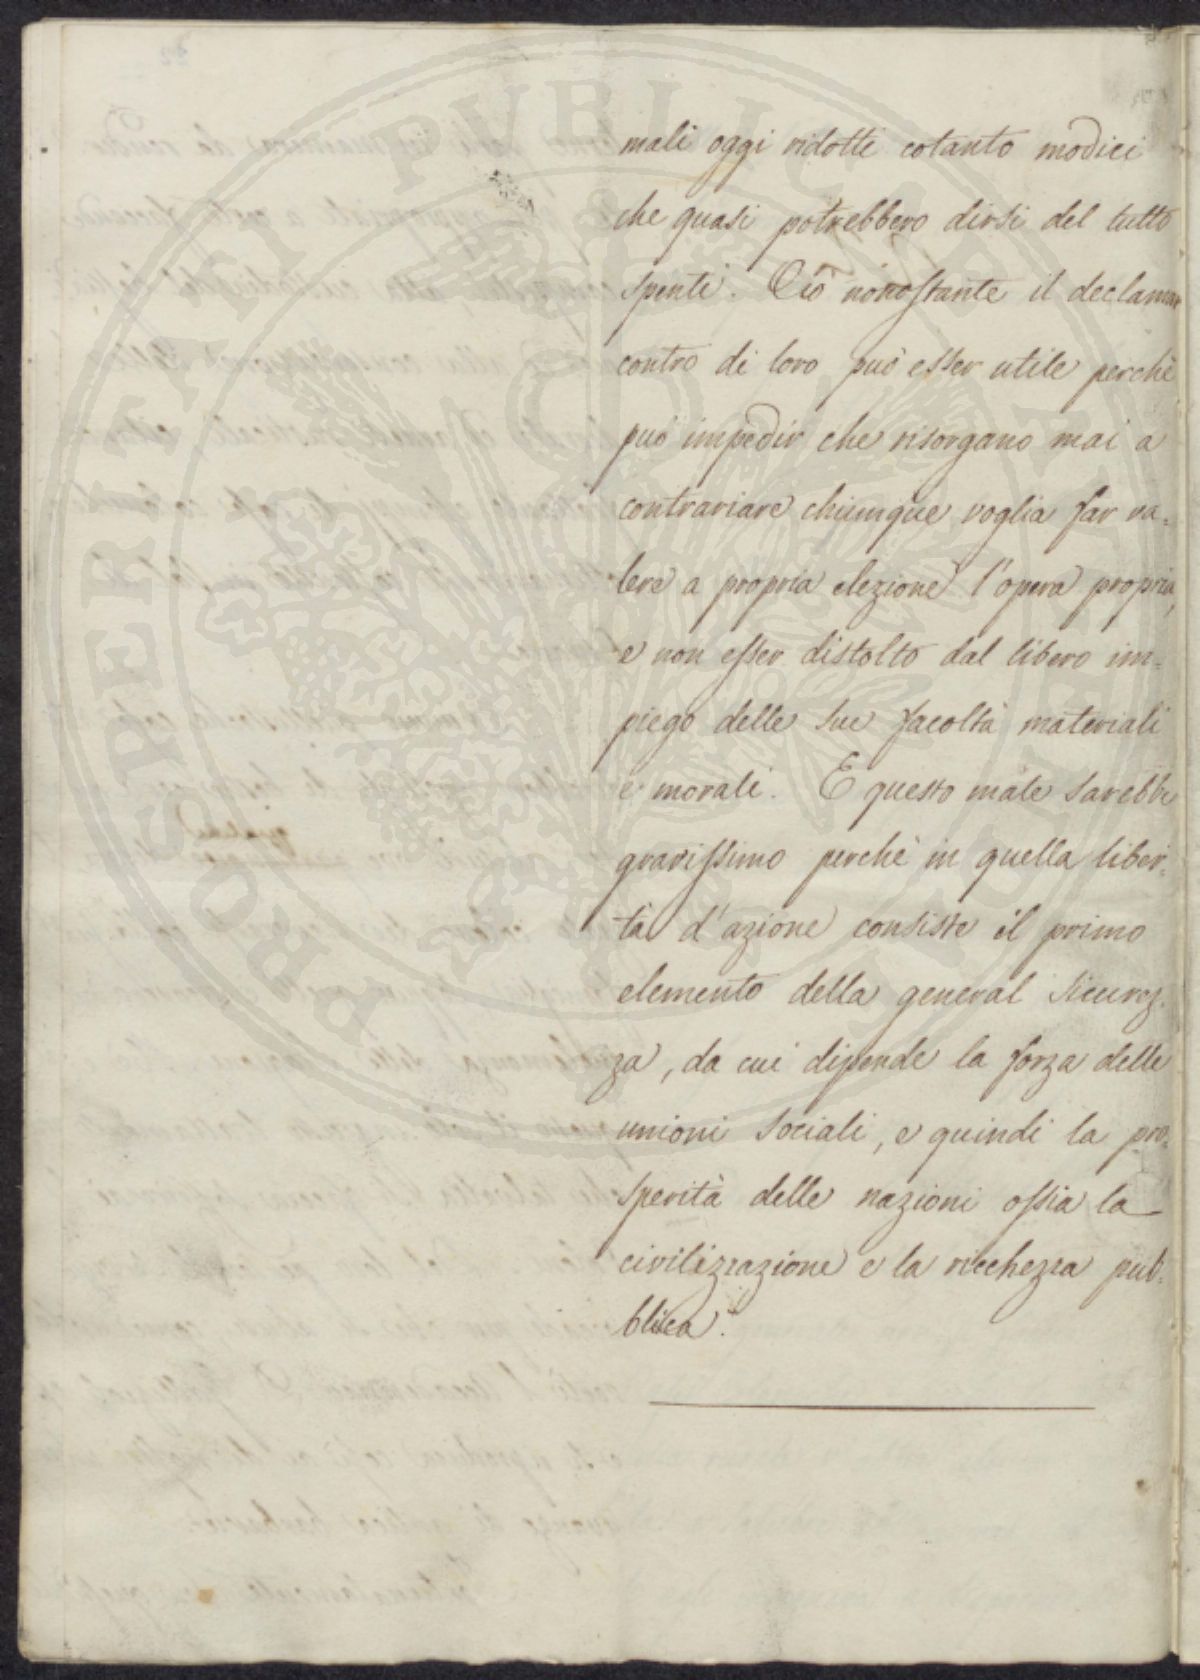 mali oggi ridotti cotanto modici
che quasi potrebbero dirsi del tutto
spenti. Ciò nonostante il declamar
contro di loro può esser utile perchè
può impedir che risorgano mai a
contrariare chiunque voglia far va=
lere a propria elezione l'opera propria,
e non esser distolto dal libero im=
piego delle sue facoltà materiali
e morali. E questo male sarebbe
gravissimo perchè in quella liber=
tà d'azione consiste il primo
elemento della general sicurez=
za, da cui dipende la forza delle
unioni sociali, e quindi la pro=
sperità delle nazioni ossia la
civilizzazione e la ricchezza pub=
blica.
PROSPERITATI PUBLICAE